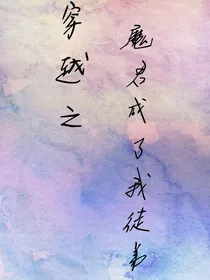 穿越之
魔君成了我徒弟